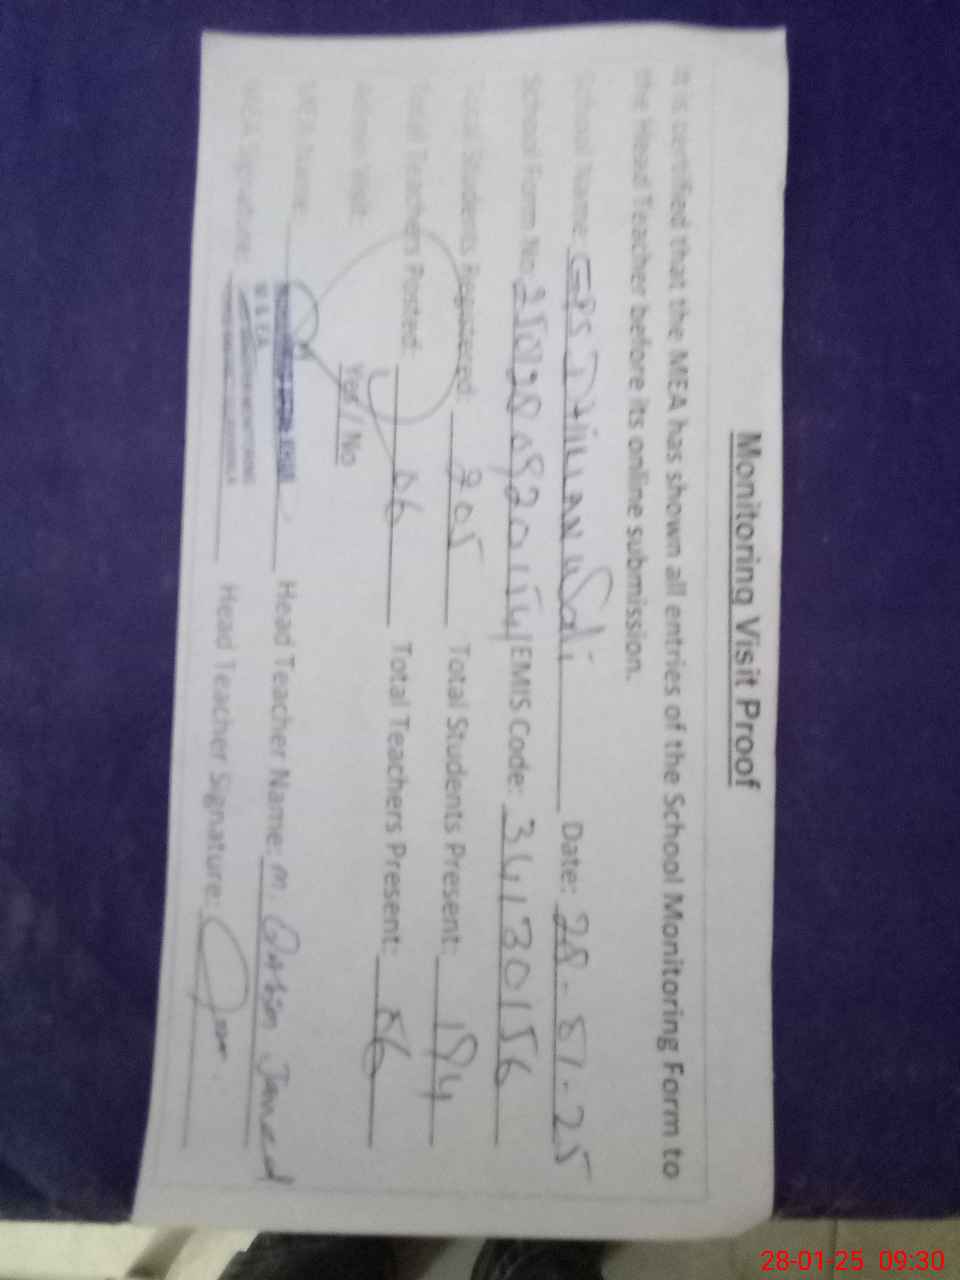 Monitoring Visit Proof
It is certified that the MEA has shown all entries of the School Monitoring Form to
the Head Teacher before its online submission.
School Name: GPS Date: 28-01-25
School Form No: EMIS Code: 34130156
Total Students Registered: 205 Total Students Present: 194
Total Teachers Posted: 06 Total Teachers Present: 06
Admin Visit: Yes / No
MEA Name: Head Teacher Name: M. Javed
MEA Signature: Head Teacher Signature:
28-01-25 09:30